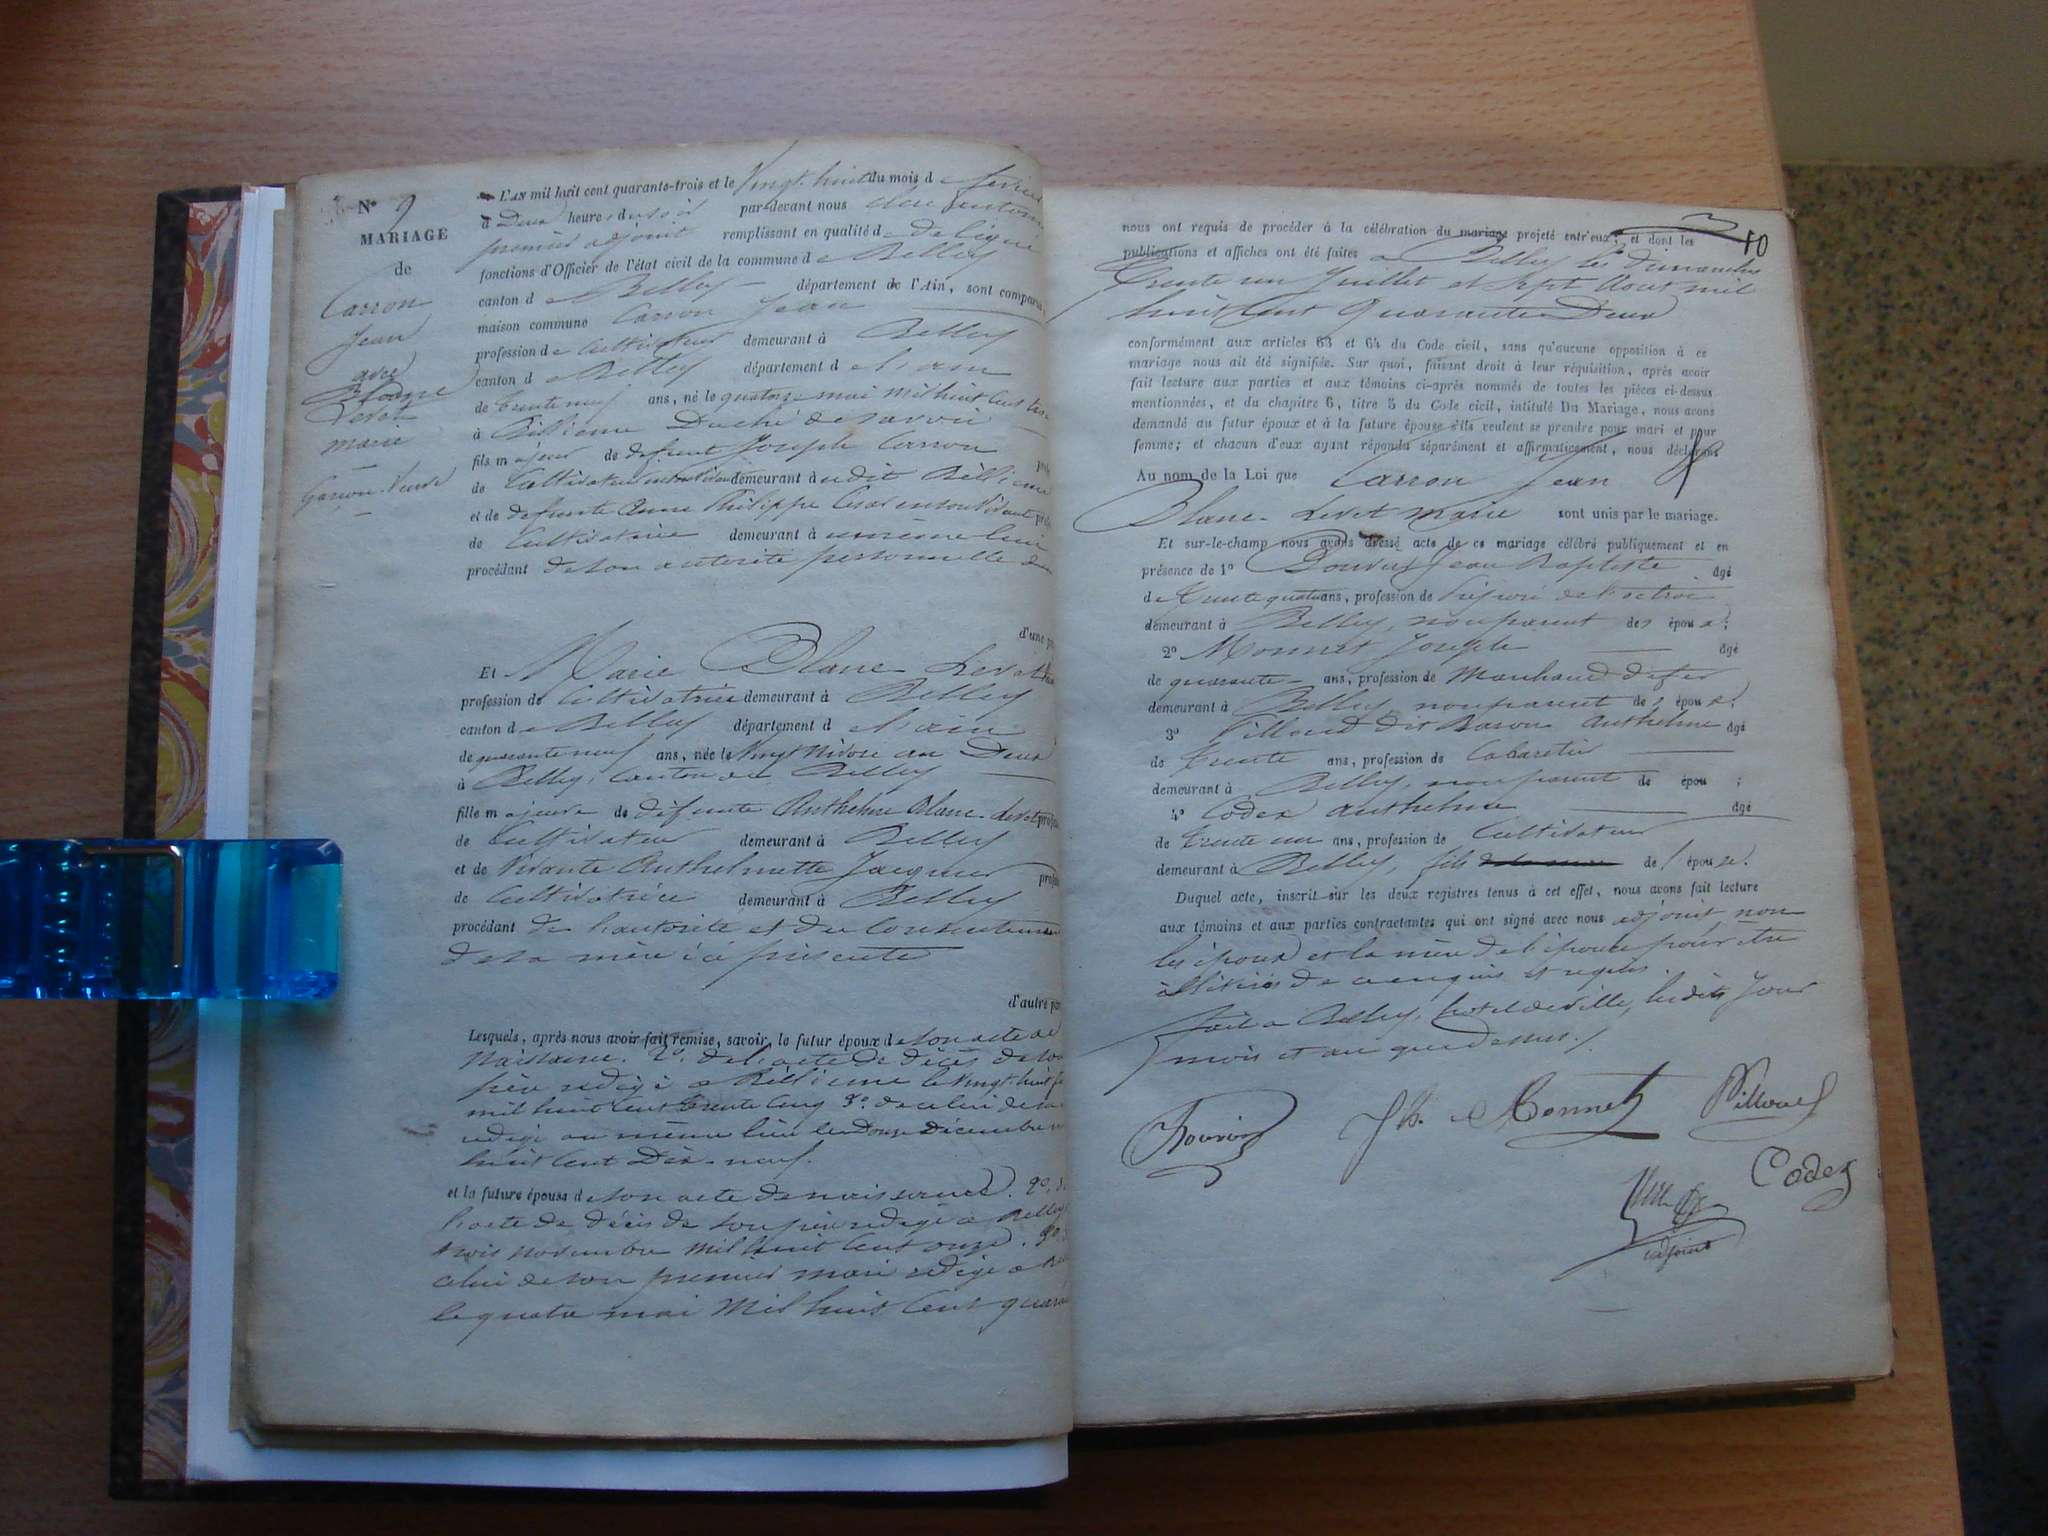 N° 9
MARIAGE
de
Carron
Jean
avec
Blanc
Levet
marie
Garçon-Veuve
L'AN mil huit cent quarante-trois et le Vingt-huit du mois de
à Deux heures du soir par-devant nous
premier adjoint remplissant en qualité de
fonctions d'Officier de l'état civil de la commune de Belley
canton de Belley département de l'Ain, sont comparus
maison commune Carron Jean
profession de Cultivateur demeurant à Belley
canton de Belley département de l'ain
de trente neuf ans, né le quatorze mai mil huit cent
à Duché de Savoie
fils majeur de défunt Joseph Carron
de Cultivateur demeurant à
et de défunte Anne Philippe
de Cultivatrice demeurant à même lieu
procédant de son autorité personnelle
d'une
Et Marie Blanc-Levet
profession de Cultivatrice demeurant à Belley
canton de Belley département de l'ain
de quarante neuf ans, née le Vingt Nivose an Deux
à Belley, Canton de Belley
fille majeure de défunte Anthelme Blanc-Levet
de Cultivateur demeurant à Belley
et de Vivante Anthelmette Jacquier
de Cultivatrice demeurant à Belley
procédant de l'autorité et du Consentement
de sa mère ici présente
d'autre
Lesquels, après nous avoir fait remise, savoir, le futur époux de son acte de
Naissance. 2°. de l'acte de décès de son
père rédigé à le Vingt-huit
mil huit cent trente cinq 3°. de celui de sa
rédigé au même lieu le Douze Décembre
huit cent Dix-neuf.
et la future épouse de son acte de naissance. 2°.
l'acte de décès de son père rédigé à Belley
trois novembre mil huit cent onze. 3°.
celui de son premier mari rédigé à
le quatre mai mil huit cent
10
nous ont requis de procéder à la célébration du mariage projeté entr'eux, et dont les
publications et affiches ont été faites à Belley les dimanches
trente un Juillet et Sept Aout mil
huit cent Quarante Deux
conformément aux articles 63 et 64 du Code civil, sans qu'aucune opposition à ce
mariage nous ait été signifiée. Sur quoi, faisant droit à leur réquisition, après avoir
fait lecture aux parties et aux témoins ci-après nommés de toutes les pièces ci-dessus
mentionnées, et du chapitre 6, titre 5 du Code civil, intitulé Du Mariage, nous avons
demandé au futur époux et à la future épouse s'ils veulent se prendre pour mari et pour
femme; et chacun d'eux ayant répondu séparément et affirmativement, nous déclarons
Au nom de la Loi que Carron Jean &
Blanc-Levet Marie sont unis par le mariage.
Et sur-le-champ nous avons dressé acte de ce mariage célébré publiquement et en
présence de 1° Jean Baptiste âgé
de trente quatre ans, profession de de l'octroi
demeurant à Belley, non parent des époux;
2° Monnet Joseph âgé
de quarante ans, profession de Marchand de fer
demeurant à Belley, non parent des époux.
3° Pilloud dit Baron Anthelme âgé
de trente ans, profession de Cabaretier
demeurant à Belley, non parent de épou ;
4° Codex Anthelme âgé
de trente un ans, profession de Cultivateur
demeurant à Belley, fils de l'épouse.
Duquel acte, inscrit sur les deux registres tenus à cet effet, nous avons fait lecture
aux témoins et aux parties contractantes qui ont signé avec nous adjoint non
les époux et la mère de l'épouse pour être
illitérés de ce enquis et requis.
fait à Belley, hotel de ville, les dits Jour
mois et an que dessus.
Jh. Monnet
Pilloud
Codex
adjoint